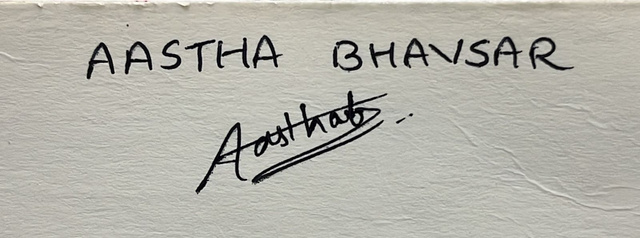 AASTHA BHAVSAR
Aasthab..